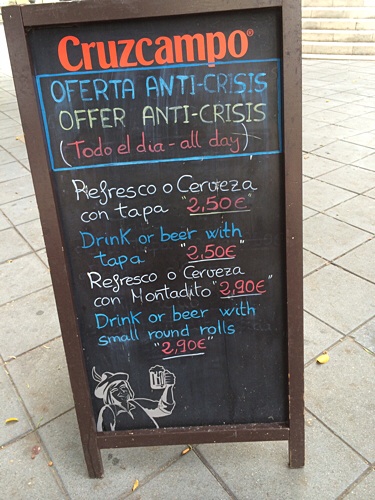 Cruzcampo®
OFERTA ANTI-CRISIS
OFFER ANTI-CRISIS
(Todo el dia - all day)
Refresco o Cerveza
con tapa "2,50€"
Drink or beer with
tapa "2,50€"
Refresco o Cerveza
con Montadito "2,90€"
Drink or beer with
small round rolls
"2,90€"